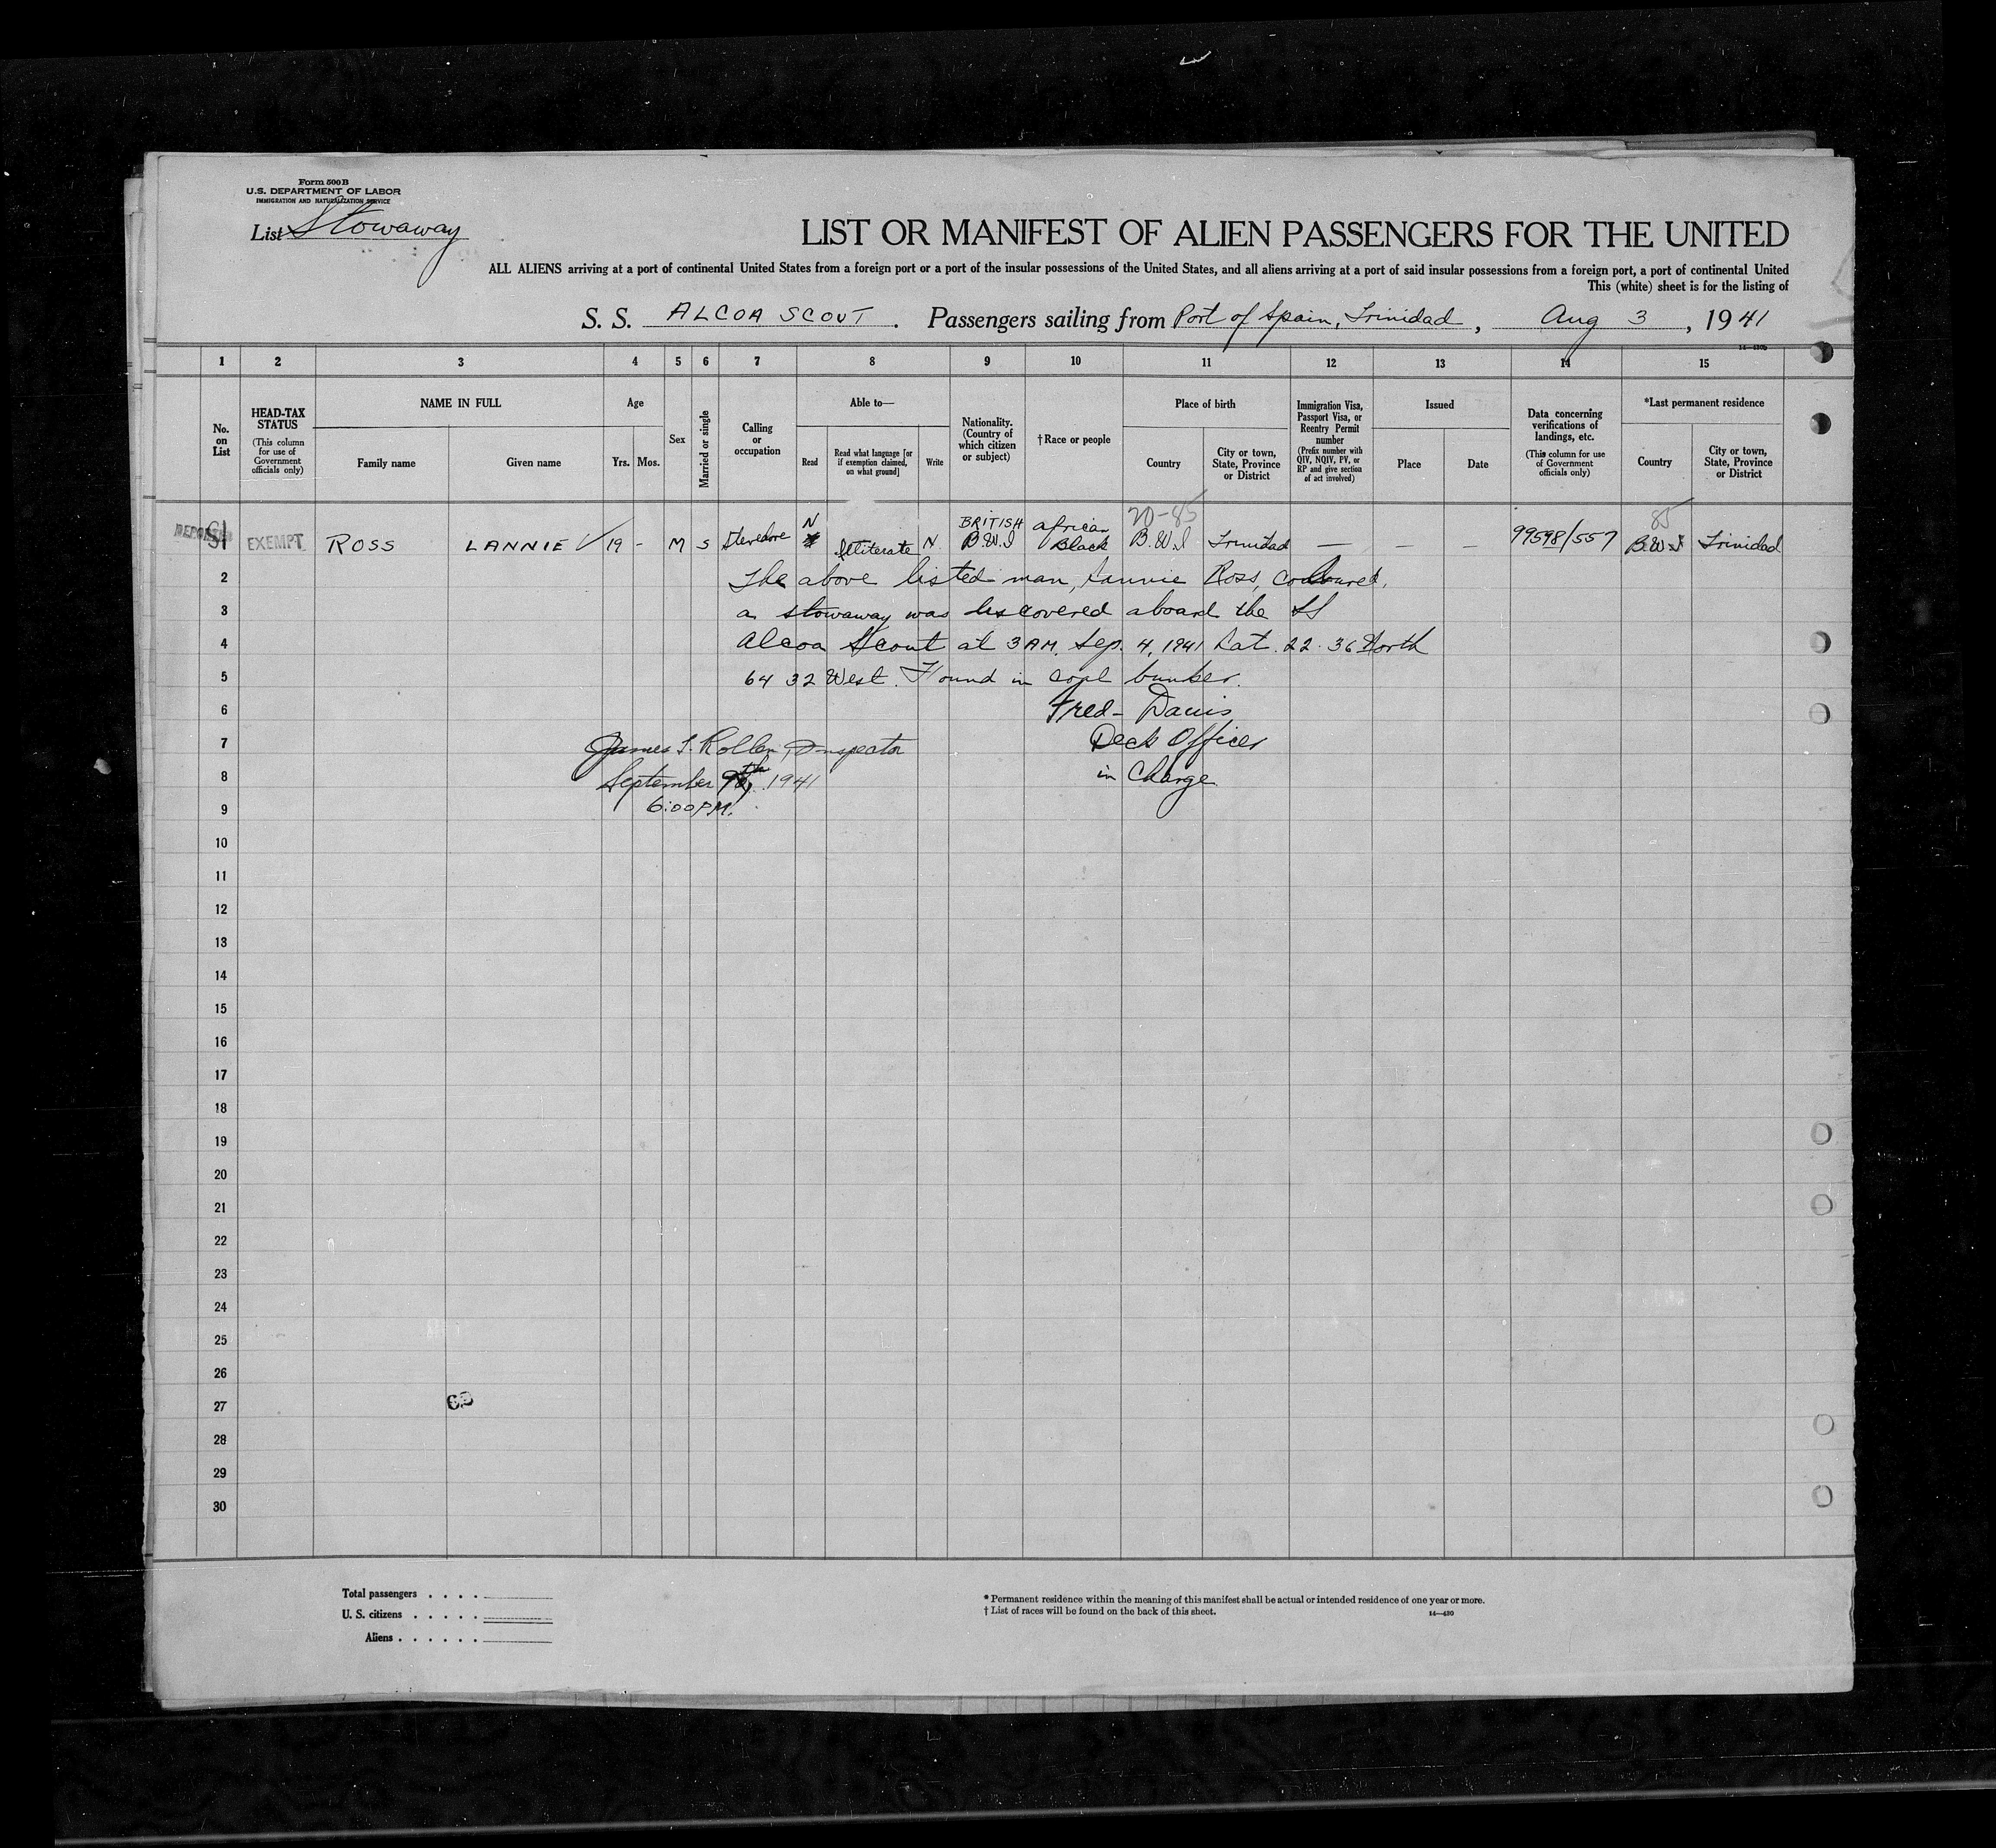 Form 500 B
U.S. DEPARTMENT OF LABOR
IMMIGRATION AND NATURALIZATION SERVICE
List Stowaway
LIST OR MANIFEST OF ALIEN PASSENGERS FOR THE UNITED
ALL ALIENS arriving at a port of continental United States from a foreign port or a port of the insular possessions of the United States, and all aliens arriving at a port of said insular possessions from a foreign port, a port of continental United
This (white) sheet is for the listing of
S. S. ALCOA SCOUT. Passengers sailing from Port of Spain, Trinidad, Aug 3, 1941
14—430b
1 2 3 4 5 6 7 8 9 10 11 12 13 14 15
No. on List
HEAD-TAX STATUS
(This column for use of Government officials only)
NAME IN FULL
Family name
Given name
Age
Yrs. Mos.
Sex
Married or single
Calling or occupation
Able to—
Read
Read what language [or if exemption claimed, on what ground]
Write
Nationality. (Country of which citizen or subject)
†Race or people
Place of birth
Country
City or town, State, Province or District
Immigration Visa, Passport Visa, or Reentry Permit number
(Prefix number with QIV, NQIV, PV, or RP and give section of act involved)
Issued
Place
Date
Data concerning verifications of landings, etc.
(This column for use of Government officials only)
*Last permanent residence
Country
City or town, State, Province or District
N BRITISH African 70-85 85
1 EXEMPT ROSS LANNIE 19 - M S Stevedore Illiterate N. B.W.I Black B.W.I Trinidad — — — 99598/557 B.W.I Trinidad
2 The above listed man, Lannie Ross, coloured,
3 a stowaway was discovered aboard the SS
4 Alcoa Scout at 3 AM. Sep. 4, 1941 Lat. 22. 36 North
5 64 32 West. Found in coal bunker.
6 Fred Davis
7 James I. Rollen, Inspector Deck Officer
8 September 9th, 1941 in Charge
9 6:00 P.M.
10
11
12
13
14
15
16
17
18
19
20
21
22
23
24
25
26
27
28
29
30
Total passengers . . . .
U. S. citizens . . . . .
Aliens . . . . . .
* Permanent residence within the meaning of this manifest shall be actual or intended residence of one year or more.
† List of races will be found on the back of this sheet.
14—430